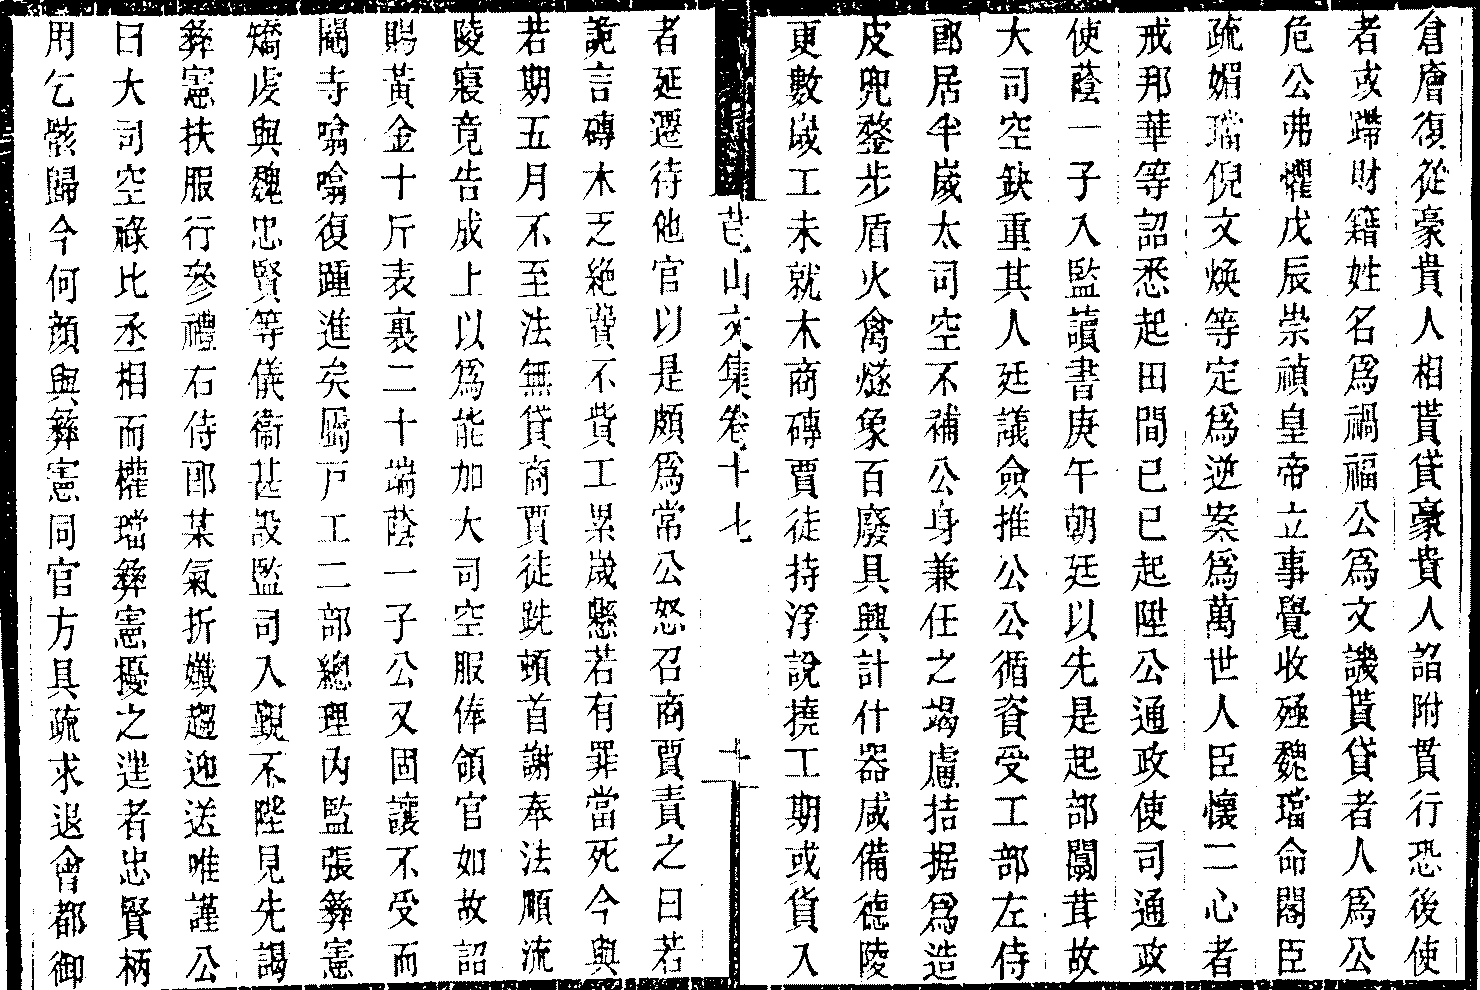 倉廥復從豪貴人相貰貸豪貴人詔附貫行恐後使
者或躋財籍姓名爲禍福公爲文譏貰貸者人爲公
危公弗懼戊辰崇禎皇帝立事覺收殛魏璫命閣臣
疏媚璫倪文煥等定爲逆案爲萬世人臣懷二心者
戒邦華等詔悉起田間已巳起陞公通政使司通政
使蔭一子入監讀書庚午朝廷以先是起部闒茸故
大司空缺重其人廷議僉推公公循資受工部左侍
郎居半嵗太司空不補公身兼任之竭慮拮据爲造
皮兜鍪步盾火禽燧象百廢具興計什器咸備德陵
更數嵗工未就木商磚賈徒持浮說撓工期或貨入
芑山文集卷十七
十一
者延遲待他官以是頗爲常公怒召商賈責之曰若
詭言磚木乏絶費不貲工累嵗懸若有罪當死今與
若期五月不至法無貸商賈徒跣頓首謝奉法順流
陵寢竟告成上以爲能加大司空服俸領官如故詔
賜黃金十斤表裏二十端蔭一子公又固讓不受而
閹寺噏噏復踵進矣屬戸工二部總理内監張彝憲
矯虔與魏忠賢等儀衞甚設監司入覲不陛見先謁
彝憲扶服行參禮右侍郎某氣折孅趨迎送唯謹公
曰大司空祿比丞相而權璫彝憲擾之逞者忠賢柄
用乞骸歸今何顔與彝憲同官方具疏求退會都御